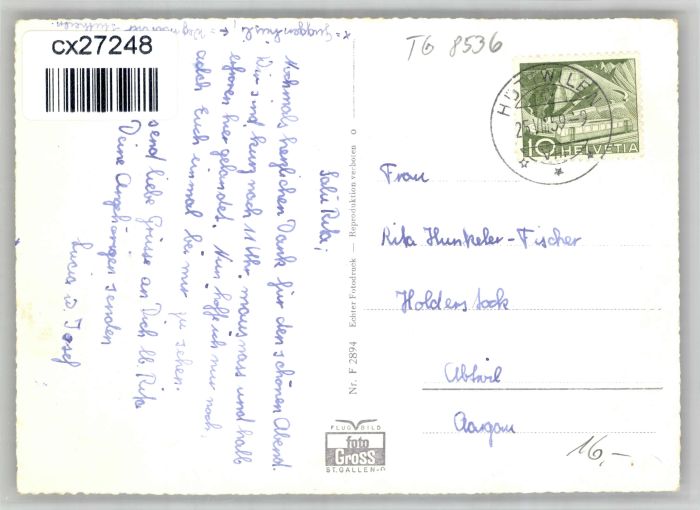 cx27248
x = Guggenhüsli,
TG 8536
HÜTTWILEN
10 HELVETIA
Salü Rita!
Nochmals herzlichen Dank für den schönen Abend.
Wir sind kurz nach 11 Uhr mausnass und halb
erfroren hier gelandet. Nun hoffe ich nur noch,
auch Euch einmal bei mir zu sehen.
send liebe Grüsse an Dich lb. Rita
Deine Angehörigen senden
Lucia u. Josef
Nr. F 2894 Echter Fotodruck — Reproduktion verboten
Frau
Rita Hunkeler-Fischer
Holderstock
Abtwil
Aargau
16,-
FLUGBILD
foto
Gross
ST. GALLEN